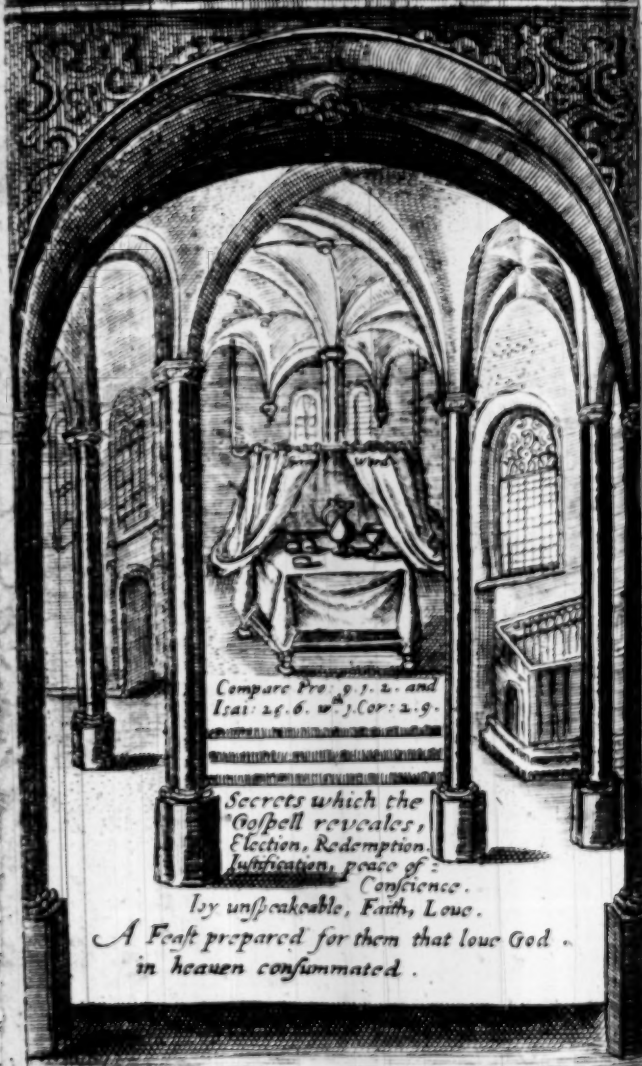 Compare Pro: 9.1.2. and
Isai: 25.6. wth. 1.Cor: 2.9.
Secrets which the
Goſpell reveales,
Election, Redemption.
Iuſtification, peace of:
Conſcience.
Ioy unſpeakeable, Faith, Loue.
A Feaſt prepared for them that loue God.
in heauen conſummated.